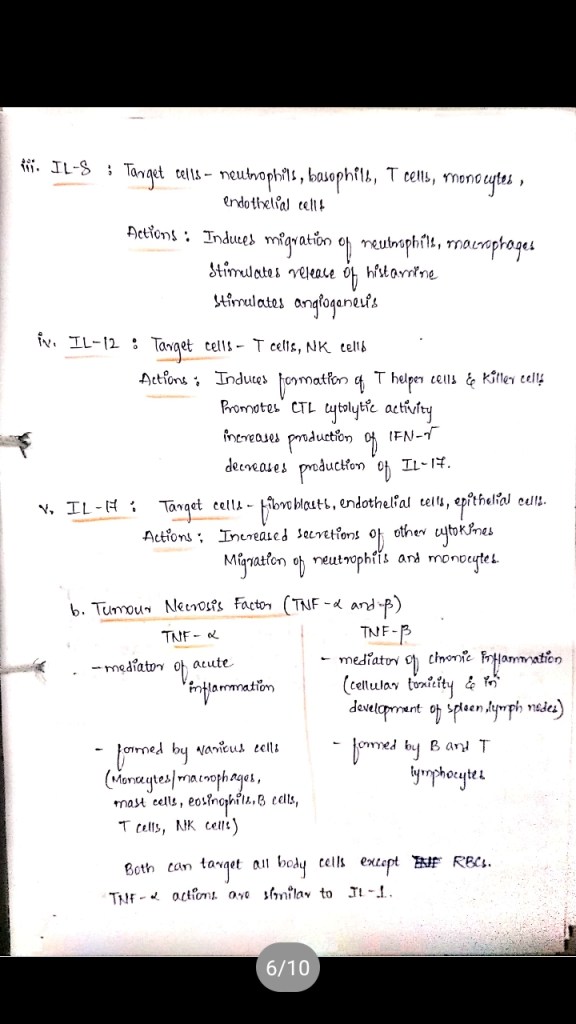 iii. IL-8 : Target cells - neutrophils, basophils, T cells, monocytes,
endothelial cells
Actions : Induces migration of neutrophils, macrophages
Stimulates release of histamine
Stimulates angiogenesis
iv. IL-12 : Target cells - T cells, NK cells
Actions : Induces formation of T helper cells & killer cells
Promotes CTL cytolytic activity
increases production of IFN-γ
decreases production of IL-17.
v. IL-17 : Target cells - fibroblasts, endothelial cells, epithelial cells.
Actions : Increased secretions of other cytokines
Migration of neutrophils and monocytes.
b. Tumour Necrosis Factor (TNF-α and-β)
TNF-α
- mediator of acute
inflammation
- formed by various cells
(Monocytes/macrophages,
mast cells, eosinophils, B cells,
T cells, NK cells)
TNF-β
- mediator of chronic inflammation
(cellular toxicity & in
development of spleen, lymph nodes)
- formed by B and T
lymphocytes
Both can target all body cells except RBCs.
TNF-α actions are similar to IL-1.
6/10